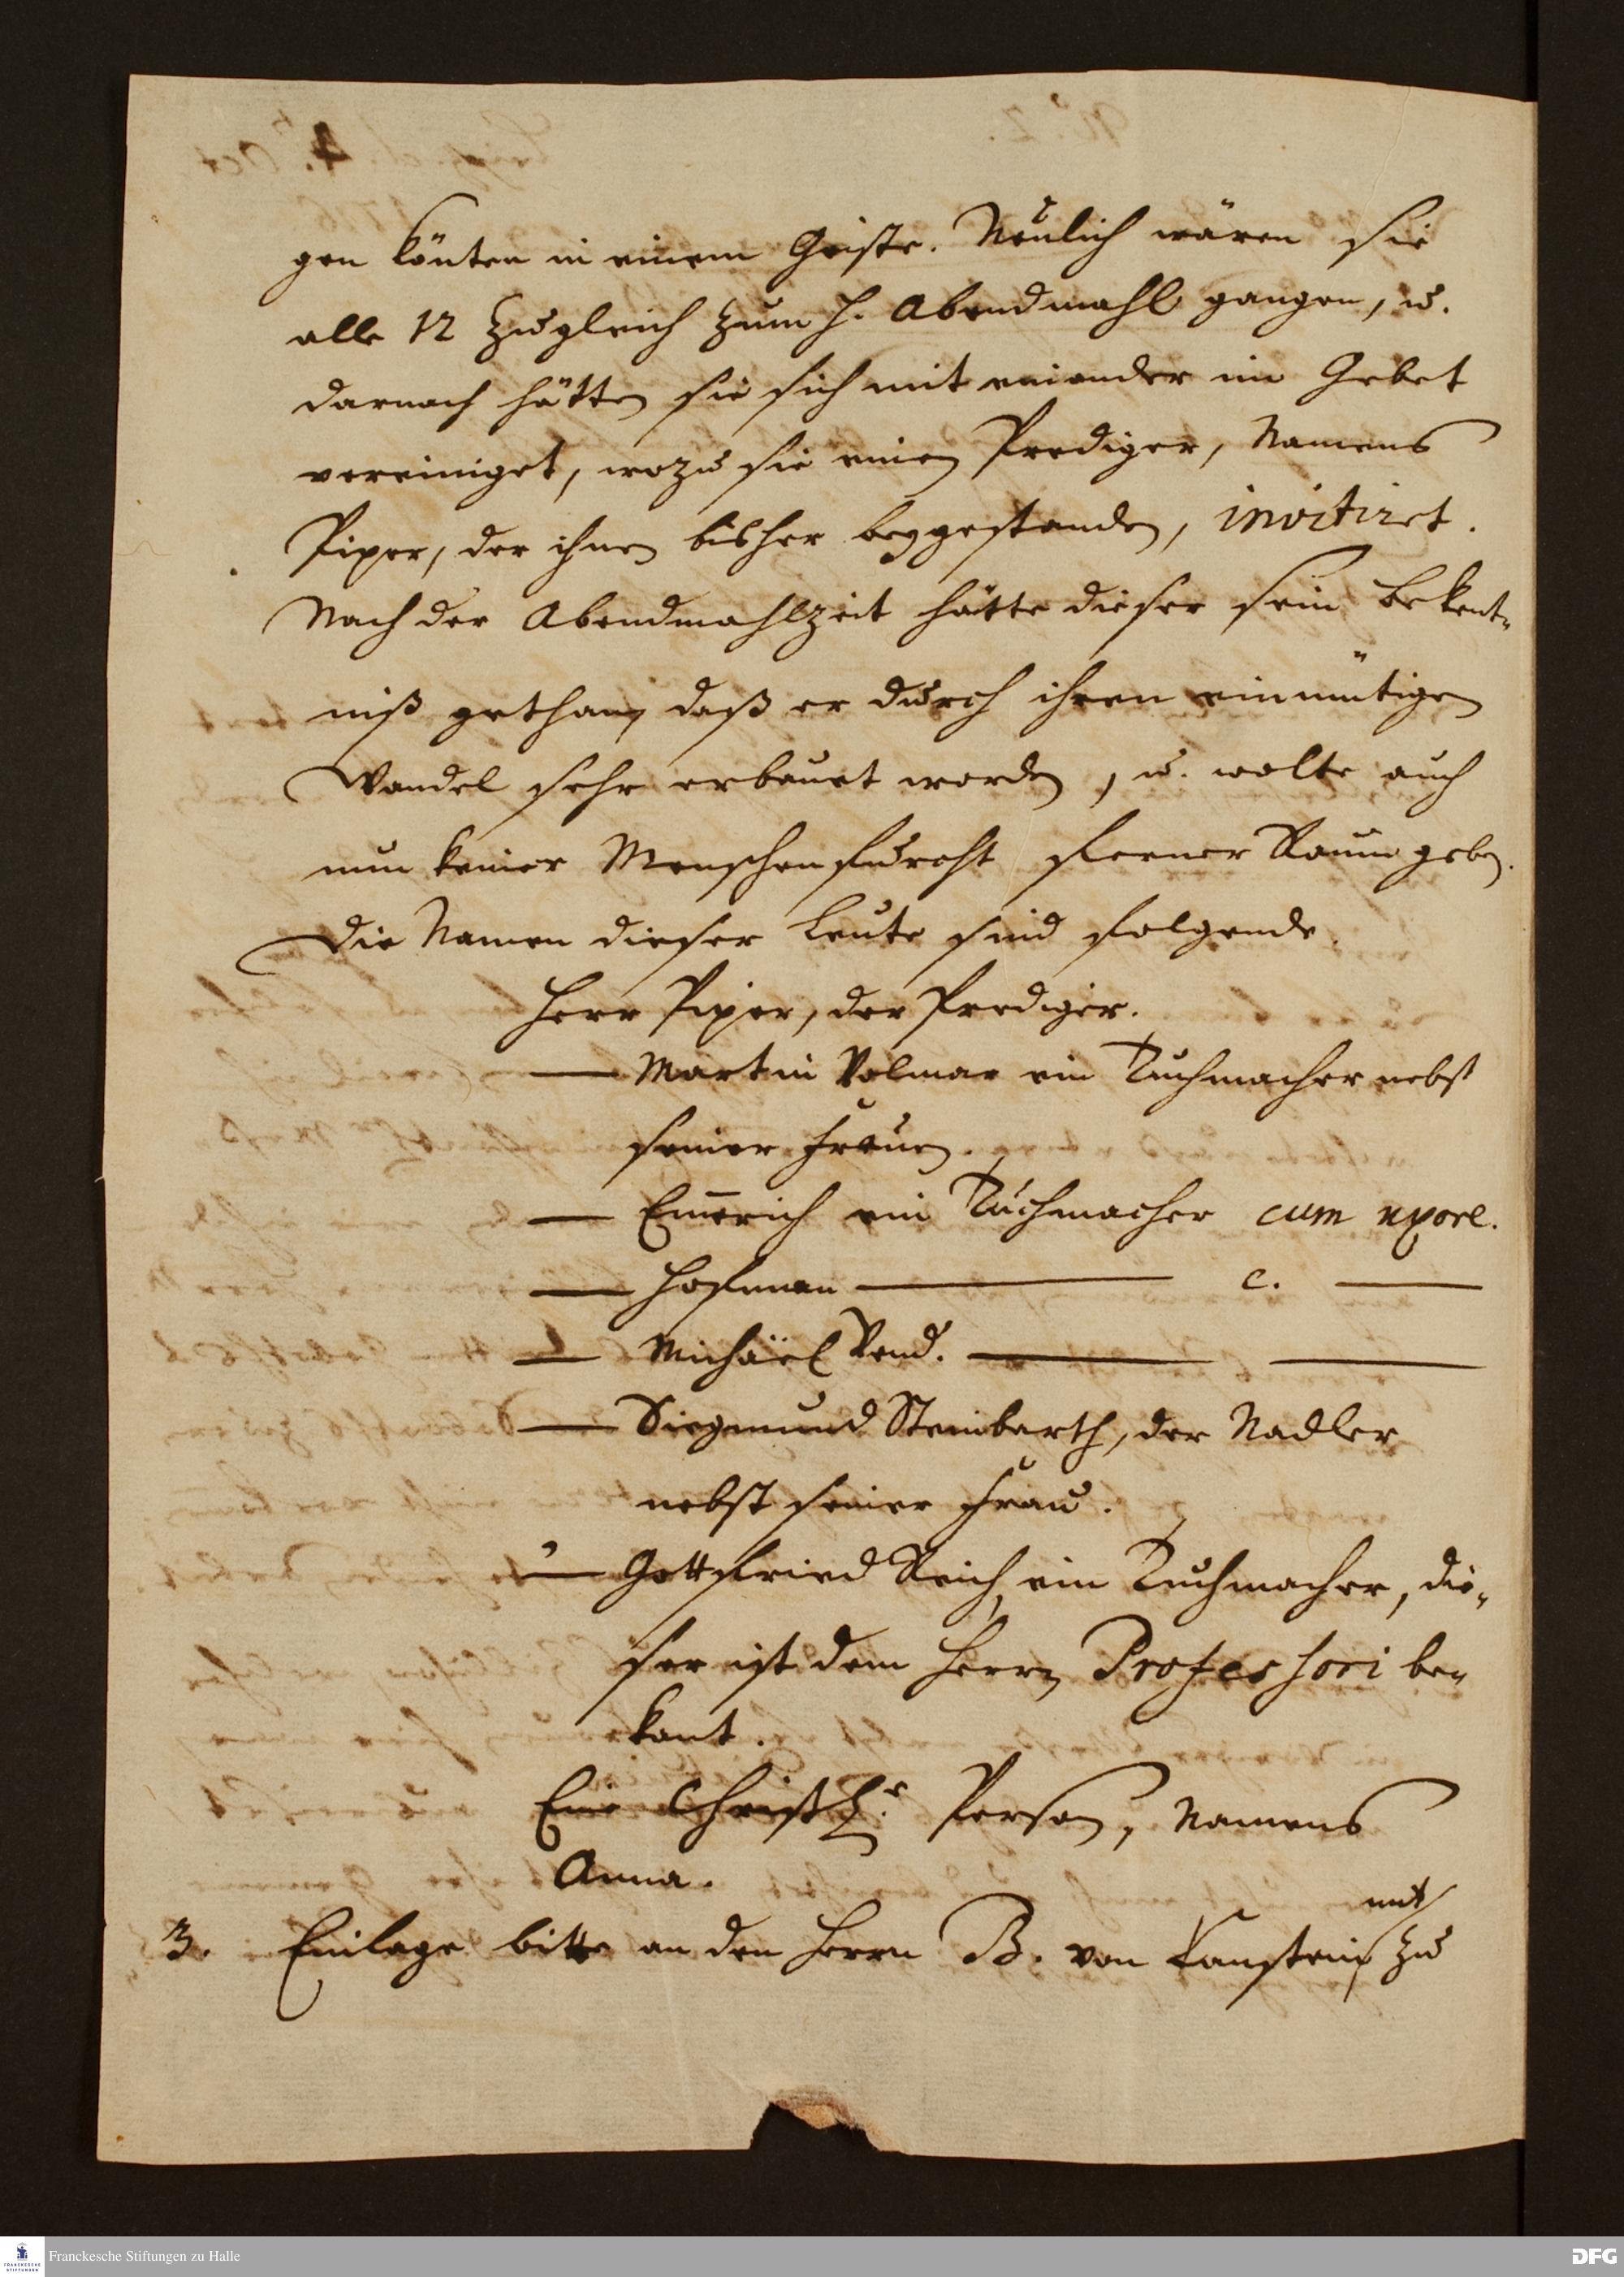 gen könten in einem Geiste. Neulich wären sie
alle 12 zugleich zum h. Abendmahl gangen, u.
darnach hätten sie sich mit einander im Gebet
vereiniget, wozu sie einen Prediger, Namens
Piper, der ihnen bisher beygestanden, invitiret.
Nach der Abendmahlzeit hätte dieser sein Bekent-
niß gethan, daß er durch ihren einmütigen
Wandel sehr erbauet worden, u. wolte auch
nun keiner Menschenfurcht ferner Raum geben.
Die Namen dieser Leute sind folgende.
Herr Piper, der Prediger.
— Martin Volmar ein Tuchmacher nebst
seiner Frauen.
— Em̄erich ein Tuchmacher cum uxore.
— Hofman — c. —
— Michäel — —
— Siegmund Steinbarth, der Nadler
nebst seiner Frau.
— Gottfried Reich, ein Tuchmacher, die-
ser ist dem Herrn Professori be-
kant.
Eine Christl. Person, Namens
Anna.
mit
3. Einlage bitte an den Herrn B. von Canstein zu
Franckesche Stiftungen zu Halle
DFG